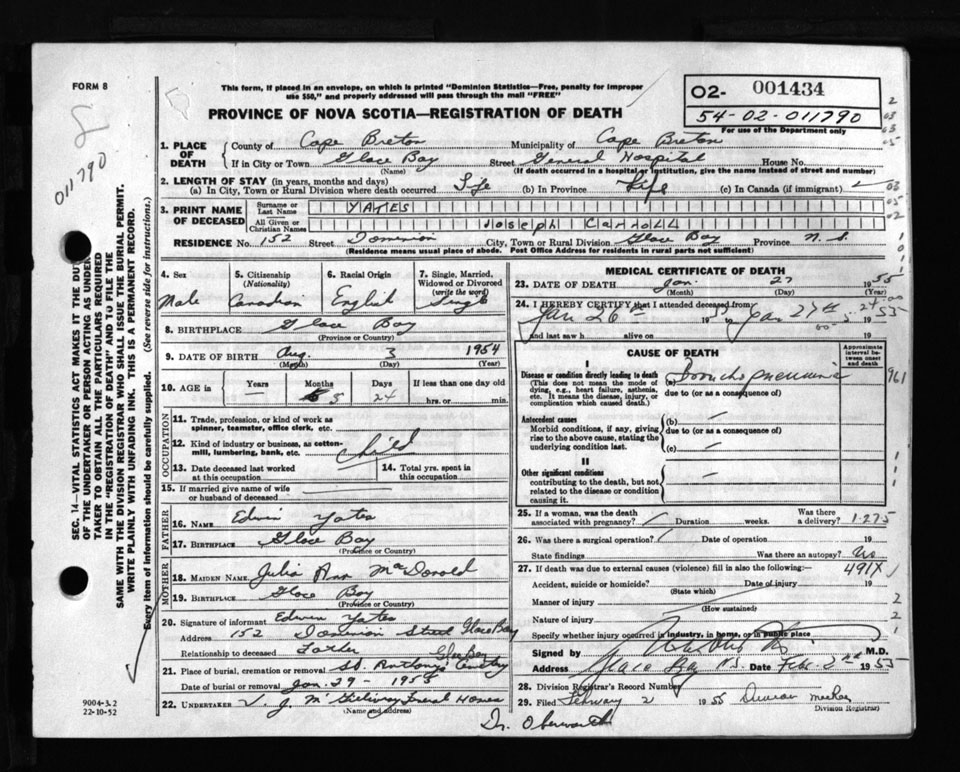 FORM 8
This form, if placed in an envelope, on which is printed "Dominion Statistics—Free, penalty for improper
use $50," and properly addressed will pass through the mail "FREE"
PROVINCE OF NOVA SCOTIA—REGISTRATION OF DEATH
02- 001434
54-02-011790
For use of the Department only
011790
SEC. 14—VITAL STATISTICS ACT MAKES IT THE DUTY
OF THE UNDERTAKER OR PERSON ACTING AS UNDER-
TAKER TO OBTAIN ALL THE PARTICULARS REQUIRED
IN THE "REGISTRATION OF DEATH" AND TO FILE THE
SAME WITH THE DIVISION REGISTRAR WHO SHALL ISSUE THE BURIAL PERMIT.
WRITE PLAINLY WITH UNFADING INK. THIS IS A PERMANENT RECORD.
Every item of information should be carefully supplied. (See reverse side for instructions.)
1. PLACE OF DEATH
County of Cape Breton Municipality of Cape Breton
If in City or Town Glace Bay Street General Hospital House No.
(Name) (If death occurred in a hospital or institution, give the name instead of street and number)
2. LENGTH OF STAY (in years, months and days)
(a) In City, Town or Rural Division where death occurred Life (b) In Province Life (c) In Canada (if immigrant)
3. PRINT NAME OF DECEASED
Surname or Last Name YATES
All Given or Christian Names Joseph Carroll
RESIDENCE No. 152 Street Dominion City, Town or Rural Division Glace Bay Province N.S.
(Residence means usual place of abode. Post Office Address for residents in rural parts not sufficient)
4. Sex Male
5. Citizenship (Nationality) Canadian
6. Racial Origin English
7. Single, Married, Widowed or Divorced (write the word) Single
8. BIRTHPLACE Glace Bay
(Province or Country)
9. DATE OF BIRTH Aug. 3 1954
(Month) (Day) (Year)
10. AGE in Years — Months 5 Days 24 If less than one day old
hrs. or min.
OCCUPATION
11. Trade, profession, or kind of work as
spinner, teamster, office clerk, etc.
12. Kind of industry or business, as cotton-
mill, lumbering, bank, etc. Child
13. Date deceased last worked
at this occupation
14. Total yrs. spent in
this occupation
15. If married give name of wife
or husband of deceased
FATHER
16. NAME Edwin Yates
17. BIRTHPLACE Glace Bay
(Province or Country)
MOTHER
18. MAIDEN NAME Julia Ann MacDonald
19. BIRTHPLACE Glace Bay
(Province or Country)
20. Signature of informant Edwin Yates
Address 152 Dominion Street Glace Bay
Relationship to deceased Father
21. Place of burial, cremation or removal St. Anthony's Cemetery Glace Bay
Date of burial or removal Jan. 29 - 1955
22. UNDERTAKER V. J. McGillivray Funeral Home
(Name and address)
9004-3.2
22-10-52
MEDICAL CERTIFICATE OF DEATH
23. DATE OF DEATH Jan. 27 1955
(Month) (Day) (Year)
24. I HEREBY CERTIFY that I attended deceased from
Jan 26th 1955 Jan 27th 1955
and last saw h alive on
CAUSE OF DEATH
Approximate interval between onset and death
I
Disease or condition directly leading to death
(This does not mean the mode of
dying, e.g., heart failure, asthenia,
etc. It means the disease, injury, or
complication which caused death.)
(a) Bronchopneumonia
due to (or as a consequence of)
Antecedent causes
Morbid conditions, if any, giving
rise to the above cause, stating the
underlying condition last.
(b) —
due to (or as a consequence of)
(c) —
II
Other significant conditions
contributing to the death, but not
related to the disease or condition
causing it.
25. If a woman, was the death
associated with pregnancy? Duration weeks. Was there a delivery? 1-275
26. Was there a surgical operation? Date of operation 19
State findings Was there an autopsy? No
27. If death was due to external causes (violence) fill in also the following:— 491X
Accident, suicide or homicide? Date of injury 19
(State which)
Manner of injury
(How sustained)
Nature of injury
Specify whether injury occurred in industry, in home, or in public place
Signed by M.D.
Address Glace Bay N.S. Date Feb. 2nd 1955
28. Division Registrar's Record Number
29. Filed February 2 1955 Duncan MacRae
Division Registrar